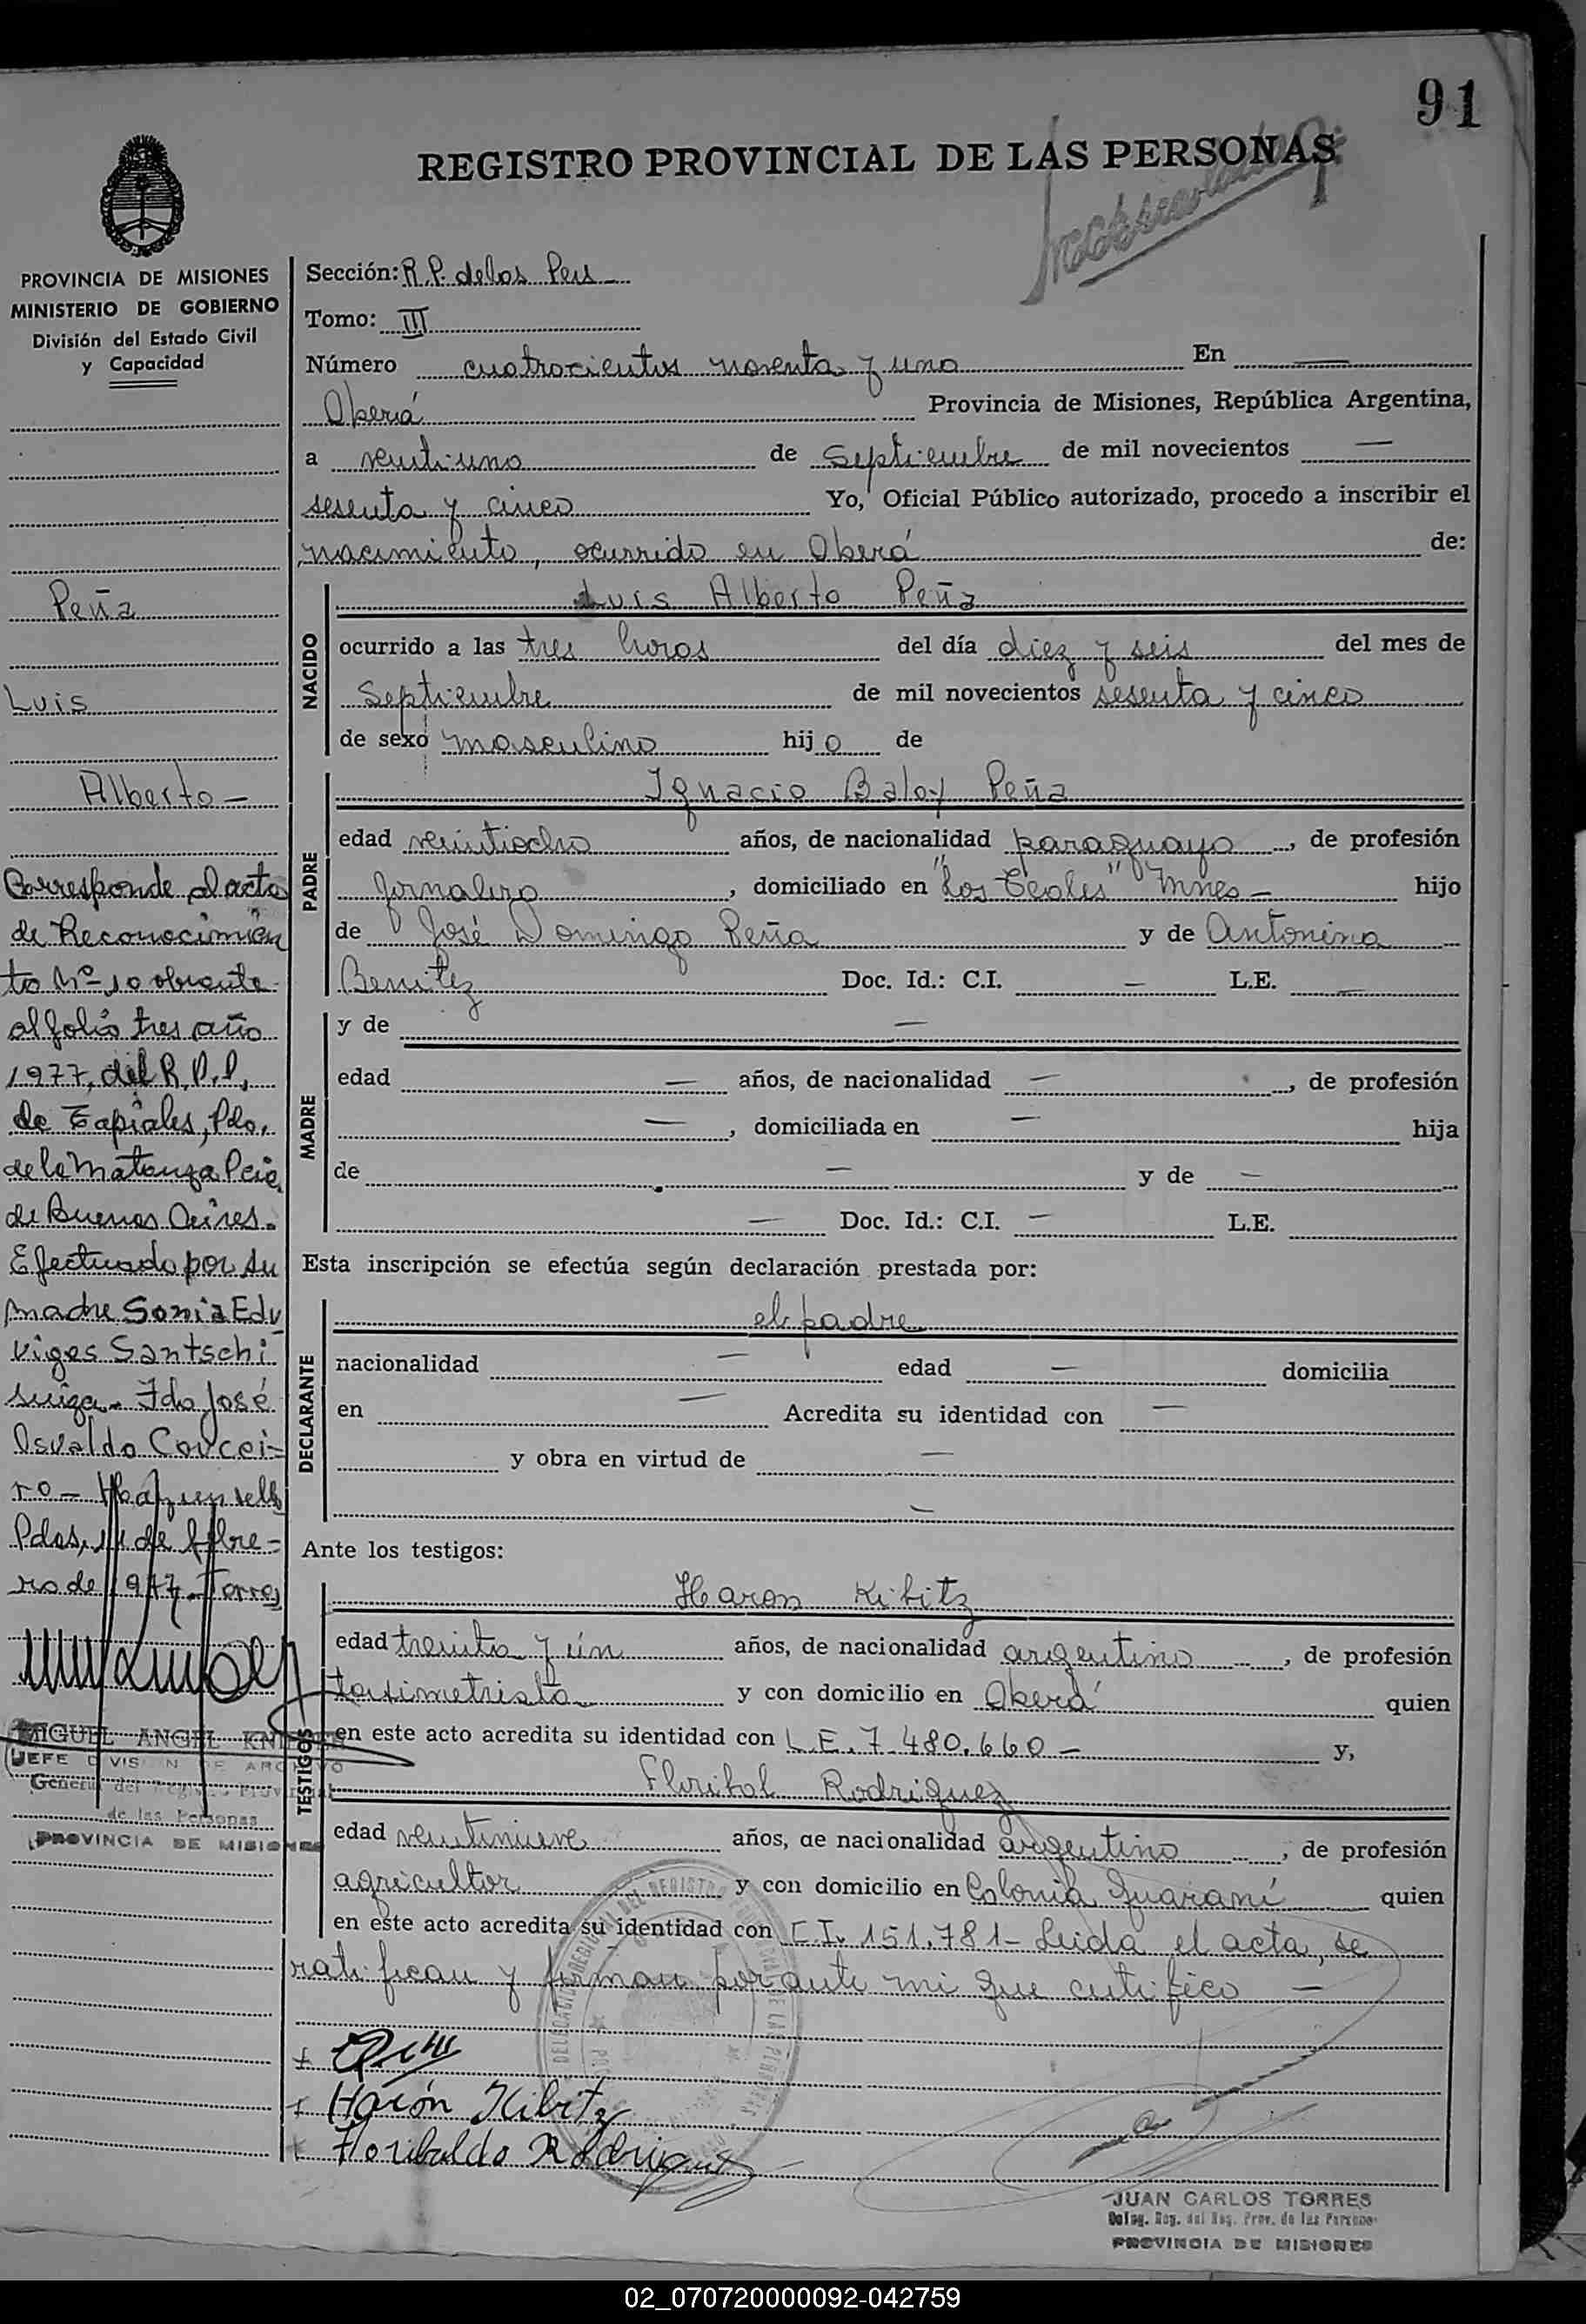 91
REGISTRO PROVINCIAL DE LAS PERSONAS
PROVINCIA DE MISIONES
MINISTERIO DE GOBIERNO
División del Estado Civil
y Capacidad
Peña
Luis
Alberto —
Corresponde al acta
de Reconocimien
to Nº 10 obrante
al folio tres año
1977, del R.P.P,
de Tapiales, Pdo,
de la Matanza Pcia,
de Buenos Aires.
Efectuado por su
madre Sonia Edu
viges Santschi
suiza. Fdo José
Osvaldo Coucei=
ro —
Pdas, de febre=
ro de 1977. Torres
MIGUEL ANGEL
JEFE DIVISION DE ARCHIVO
General del Registro Provincial
de las Personas
PROVINCIA DE MISIONES
Sección: R.P. de las Pers —
Tomo: III
Número cuatrocientos noventa y uno En —
Oberá Provincia de Misiones, República Argentina,
a veintiuno de Septiembre de mil novecientos —
sesenta y cinco Yo, Oficial Público autorizado, procedo a inscribir el
nacimiento, ocurrido en Oberá de:
NACIDO
Luis Alberto Peña
ocurrido a las tres horas del día diez y seis del mes de
Septiembre de mil novecientos sesenta y cinco
de sexo masculino hijo de
PADRE
Ignacio Baloy Peña
edad veintiocho años, de nacionalidad paraguayo, de profesión
jornalero, domiciliado en "Los Teales" Mnes — hijo
de José Domingo Peña y de Antonina
Benitez Doc. Id.: C.I. — L.E. —
MADRE
y de —
edad — años, de nacionalidad —, de profesión
—, domiciliada en — hija
de — y de —
— Doc. Id.: C.I. — L.E.
Esta inscripción se efectúa según declaración prestada por:
DECLARANTE
el padre
nacionalidad — edad — domicilia
en — Acredita su identidad con —
y obra en virtud de —
—
Ante los testigos:
TESTIGOS
Haron Kibitz
edad treinta y un años, de nacionalidad argentino, de profesión
taximetrista y con domicilio en Oberá quien
en este acto acredita su identidad con L.E. 7.480.660 — y,
Floribal Rodriguez
edad veintinueve años, de nacionalidad argentino, de profesión
agricultor y con domicilio en Colonia Guaraní quien
en este acto acredita su identidad con C.I. 151.781 — Leida el acta, se
ratifican y firman por ante mi que certifico —
Harón Kibitz
Floribaldo Rodriguez
JUAN CARLOS TORRES
PROVINCIA DE MISIONES
02_070720000092-042759